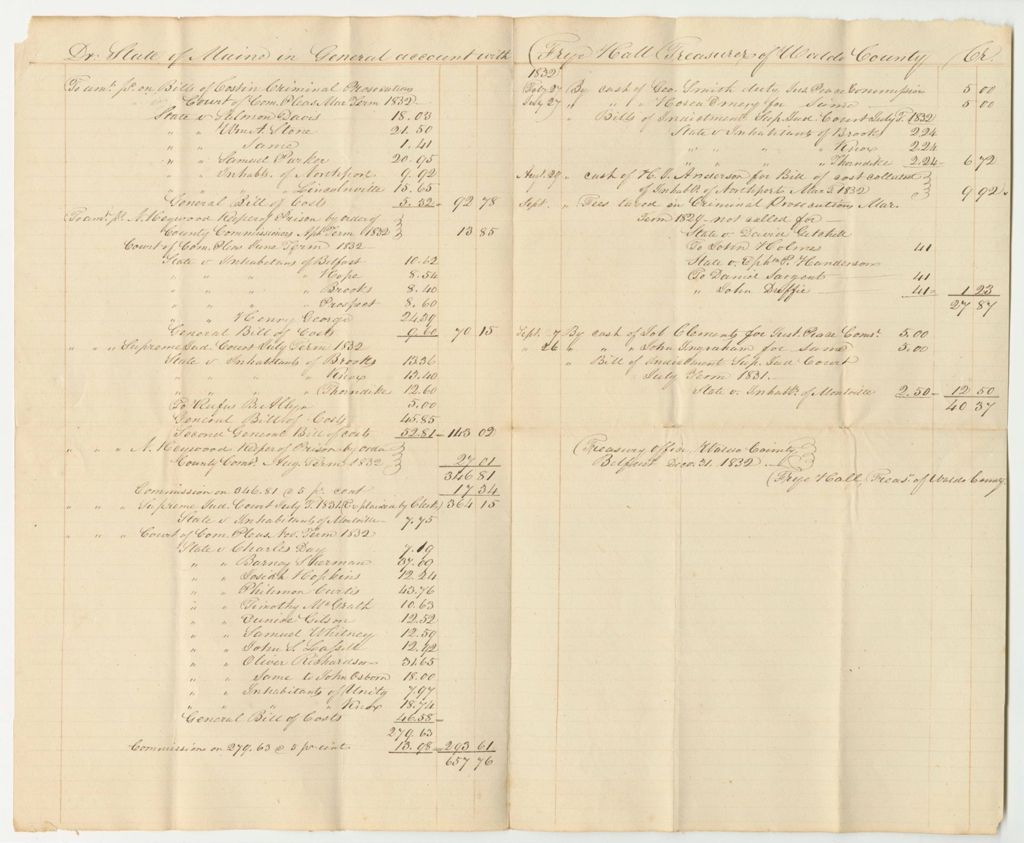 Dr. State of Maine in General account with
To amt. pd. on Bills of Cost in Criminal Prosecutions
Court of Com. Pleas Mar. Term 1832
State v Salmon Davis 18.03
" " Stone 21.50
" " Same 1.41
" " Samuel Parker 20.95
" " Inhabts. of Northport 9.92
" " " " Lincolnville 15.65
General Bill of Costs 5.32 92 78
To amt. pd. A. Heywood Keeper of Prison by order of
County Commissioners Apl. Term 1832 13 85
Court of Com. Pleas June Term 1832
State v Inhabitants of Belfast 10.62
" " " " Hope 8.54
" " " " Brooks 8.40
" " " " Prospect 8.60
" " Henry George 24.29
General Bill of Costs 9.60 70 15
" " " Supreme Jud. Court July Term 1832
State v Inhabitants of Brooks 13.36
" " " " Knox 13.40
" " " " Thorndike 12.60
To Rufus B. Allyn 5.00
General Bill of Costs 45.85
Second General Bill of Costs 52.81 143 02
" " " A. Heywood Keeper of Prison by order
County Comrs. Aug. Term 1832 27 01
346 81
Commission on 346.81 @ 5 pr. cent 17 34
" " " Supreme Jud. Court July T. 1831 (Explained by Clerk) 364 15
State v Inhabitants of Montville 7.75
" " " Court of Com. Pleas Nov. Term 1832
State v Charles Day 7.19
" " Barney Sherman 37.69
" " Joseph Hopkins 12.24
" " Philemon Curtis 43.76
" " Timothy McGrath 10.63
" " Eunice Gilson 12.52
" " Samuel Whitney 12.59
" " John S. 12.42
" " Oliver Richardson 31.65
" " Same to John Osborn 18.00
" " Inhabitants of Unity 7.97
" " " " Knox 18.74
General Bill of Costs 46.58
279.63
Commissions on 279.63 @ 5 pr. cent. 13.98 293 61
657 76
Frye Hall Treasurer of Waldo County Cr.
1832
July 27 By cash of Geo. Smith duty Just. Peace Commission 5 00
July 27 " " " Hosea Emery for Same 5 00
" Bills of Indictment Sup. Jud. Court July T. 1832
State v Inhabitants of Brooks 2.24
" " " " Knox 2.24
" " " " Thorndike 2.24 6 72
Augt. 29 " cash of H. J. Anderson for Bill of cost collected
of Inhabts. of Northport Mar. T. 1832 9 92
Sept. " Fees taxed in Criminal Prosecutions Mar.
Term 1829 not called for
State v. David Getchell
To John Holmes 41
State v. Ephm. P. Handerson
To Daniel Sargent 41
" John Duffie 41 1 23
27 87
Sept. 7 By cash of Job Clements for Just. Peace Comn. 5.00
" 26 " " " John Ingraham for same 5.00
" Bill of Indictment Sup. Jud. Court
July Term 1831.
State v. Inhabts. of Montville 2.50 12 50
40 37
Treasury Office, Waldo County
Belfast Dec. 31. 1832
Frye Hall, Treasr. of Waldo County